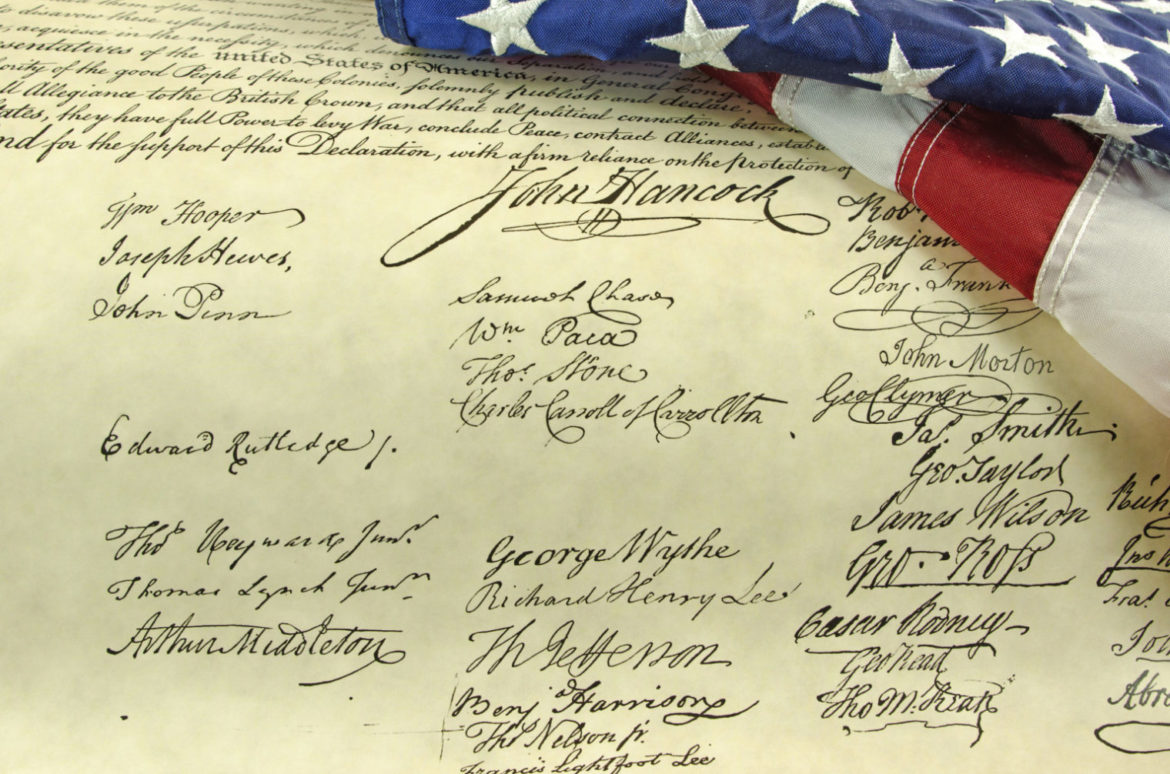 to disavow these usurpations, which
acquiesce in the necessity, which denounces our Separation, and
sentatives of the united States of America, in General Cong
ority of the good People of these Colonies, solemnly publish and declare,
ll Allegiance to the British Crown, and that all political connection between
ates, they have full Power to levy War, conclude Peace, contract Alliances, establ
nd for the support of this Declaration, with a firm reliance on the Protection of
John Hancock
Wm Hooper
Joseph Hewes,
John Penn
Edward Rutledge /.
Thos Heyward Junr.
Thomas Lynch Junr.
Arthur Middleton
Samuel Chase
Wm. Paca
Thos. Stone
Charles Carroll of Carrollton
George Wythe
Richard Henry Lee
Th Jefferson
Benj Harrison
Ths Nelson jr.
Francis Lightfoot Lee
Rob
Benjam
Benj. Frank
John Morton
Geo Clymer
Jas. Smith.
Geo. Taylor
James Wilson
Geo. Ross
Caesar Rodney
Geo Read
Tho M. Kean
Rich
Jos
Fra
Jo
Abr